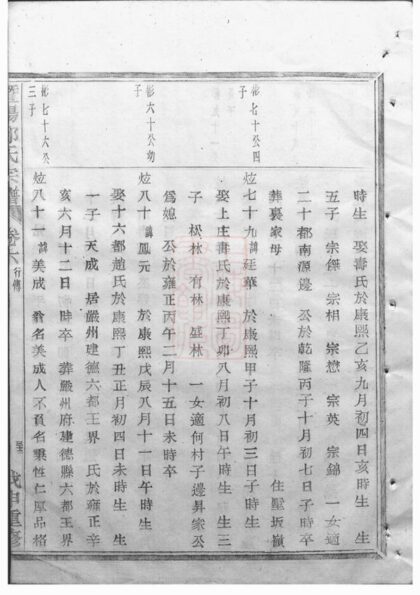 時生 娶壽氏於康熙乙亥九月初四日亥時生 生
五子 宗傑 宗相 宗懋 宗英 宗錦 一女適
二十都南源邊 公於乾隆丙子十月初七日子時卒
葬裏家母 住壓坂嶺
彬七十公四
子
炫七十九諱廷華 於康熙甲子十月初三日子時生
娶上庄壽氏於康熙丁卯八月初八日午時生 生三
子 松林 有林 盛林 一女適何村子邊昇家公
爲媳 公於雍正丙午二月十五日未時卒
彬六十公幼
子
炫八十諱鳳元 於康熙戊辰八月十一日午時生
娶十六都趙氏於康熙丁丑正月初四日未時生 生
一子 天成 居嚴州建德六都王界 氏於雍正辛
亥六月十二日時卒 葬嚴州府建德縣六都王界
彬七十六公
三子
炫八十一諱美成 名美成人不負名秉性仁厚品格
氏宗譜 卷六 行傳
戊申重修